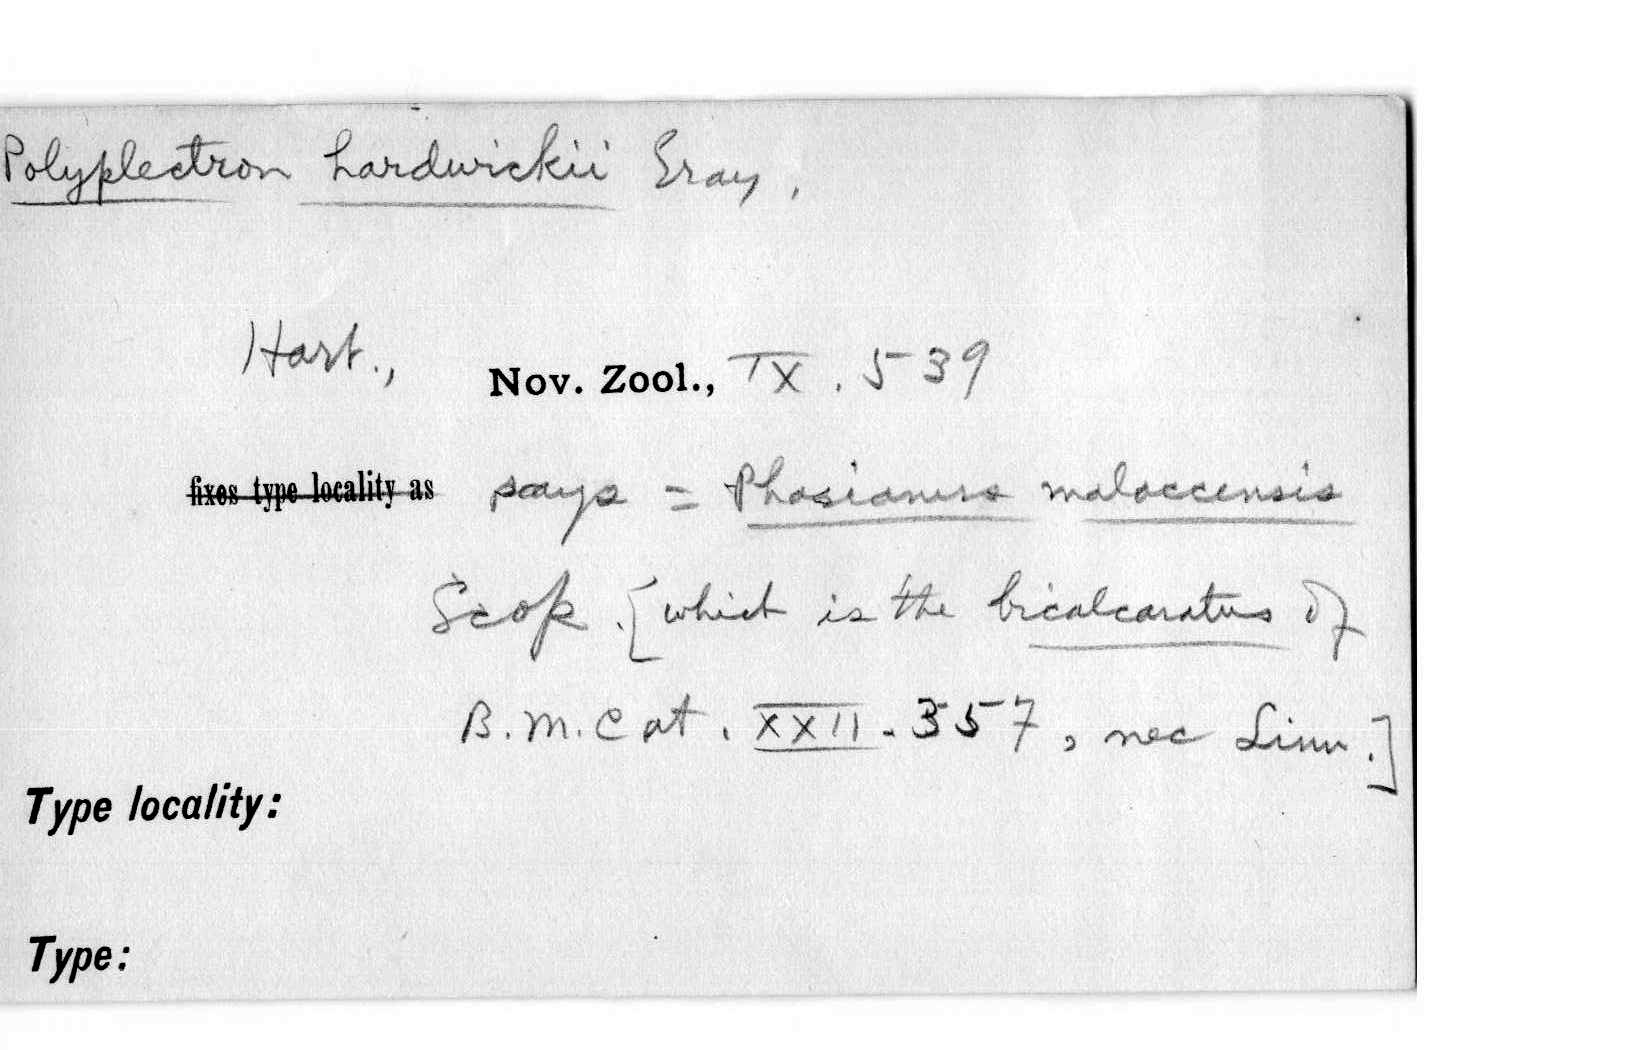 Polyplectron hardwickii Gray,
Hart., Nov. Zool., IX. 539
fixes type locality as says = Phasianus malaccensis
Scop. [which is the bicalcaratus of
B.M.Cat. XXII. 357, nec Linn.]
Type locality:
Type: